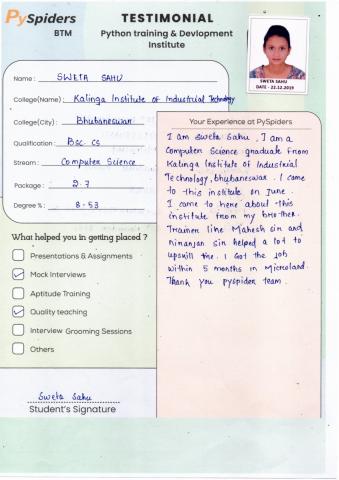 PySpiders
BTM
TESTIMONIAL
Python training & Devlopment
Institute
SWETA SAHU
DATE - 22.12.2019
Name : SWETA SAHU
College(Name) : Kalinga Institute of Industrial Technology
College(City) : Bhubaneswar
Qualification : Bsc. CS
Stream : Computer Science
Package : 2.7
Degree % : 8.53
What helped you in getting placed ?
Presentations & Assignments
Mock Interviews
Aptitude Training
Quality teaching
Interview Grooming Sessions
Others
Sweta Sahu
Student's Signature
Your Experience at PySpiders
I am Sweta Sahu, I am a
Computer Science graduate from
Kalinga Institute of Industrial
Technology, bhubaneswar. I came
to this institute on June.
I come to here about this
institute from my brother.
Trainer like Mahesh sir and
niranjan sir helped a lot to
upskill me. I Got the job
within 5 months in Microland.
Thank you pyspider team.